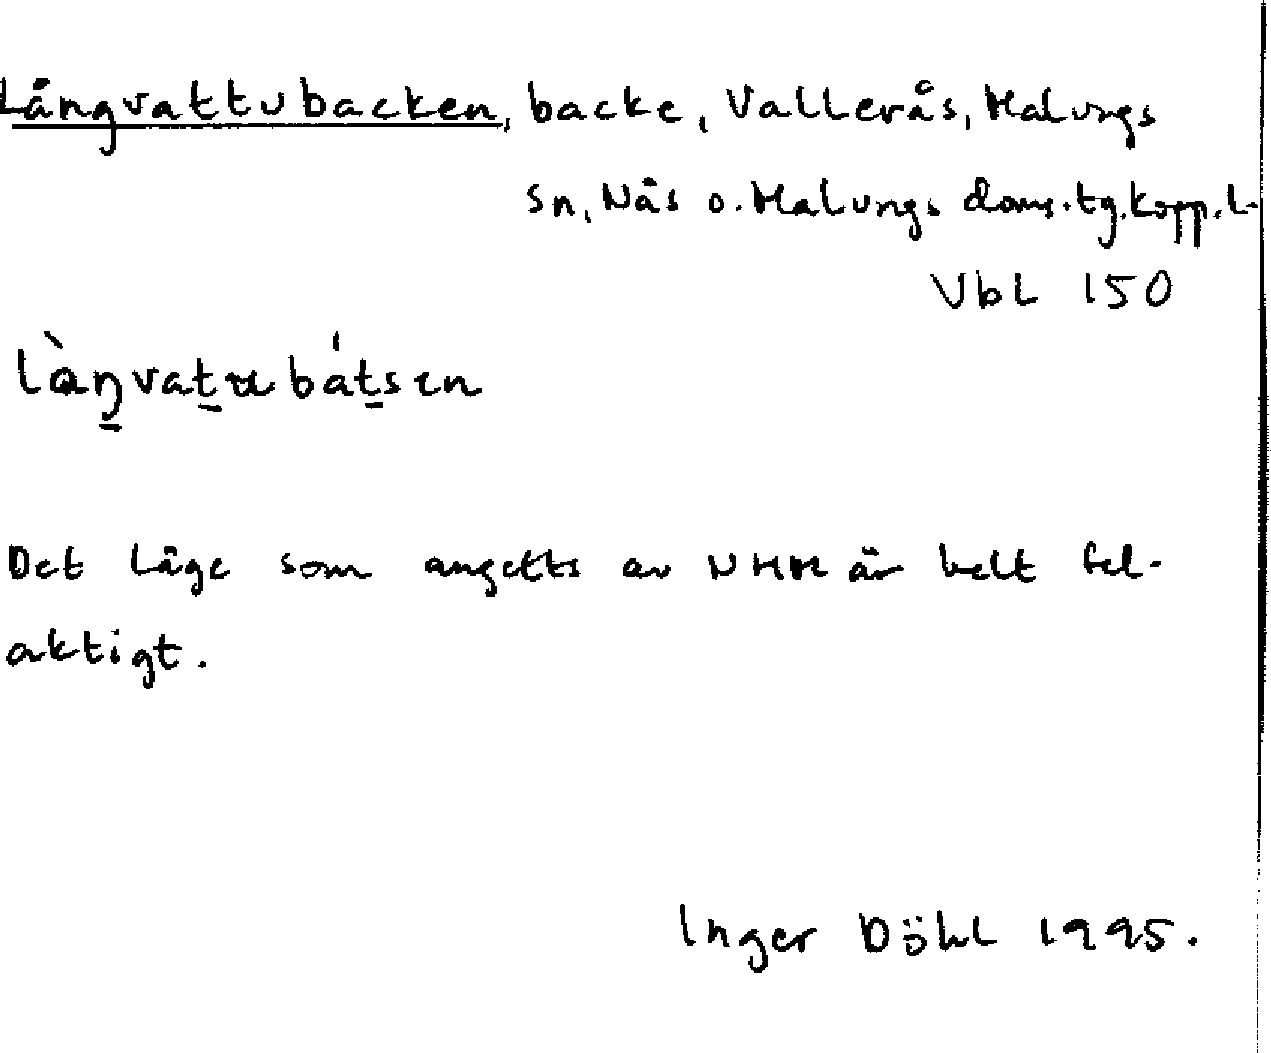 Långvattubacken, backe, Vallerås, Malungs
sn, Nås o. Malungs doms.tg. Kopp. l.
Vbl 150
làŋvatubátsen
Det läge som angetts av NMM är helt fel-
aktigt.
Inger Döhl 1995.